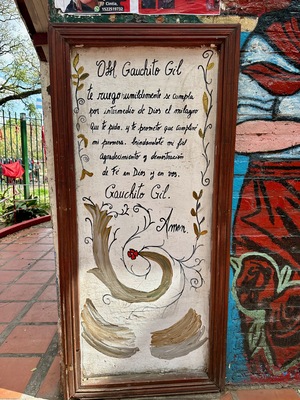 Cintia
1522519732
Ohh Gauchito Gil
te ruego umildemente se cumpla
por intermedio de Dios el milagro
que te pido, y te prometo que cumpliré
mi promesa, brindandote mi fiel
agradecimiento y demostración
de Fé en Dios y en vos.
Gauchito Gil.
Amen.